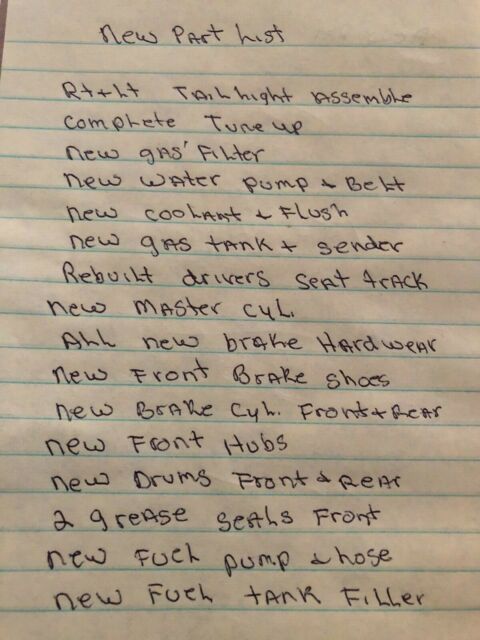 New Part List
Rt + Lt Tail light Assemble
Complete Tune up
New gas Filter
New water pump + Belt
New coolant + Flush
New gas tank + sender
Rebuilt drivers seat track
New Master Cyl.
All new brake Hardwear
New Front Brake Shoes
New Brake Cyl. Front + Rear
New Front Hubs
New Drums Front & Rear
2 grease seals Front
New Fuel pump & hose
New Fuel tank Filler